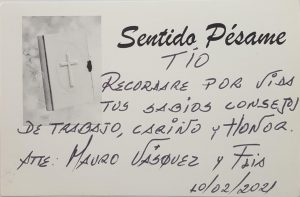 Sentido Pésame
TÍO
RECORDARE POR VIDA
TUS SABIOS CONSEJOS
DE TRABAJO, CARIÑO Y HONOR.
ATTE: MAURO VÁSQUEZ Y
10/02/2021